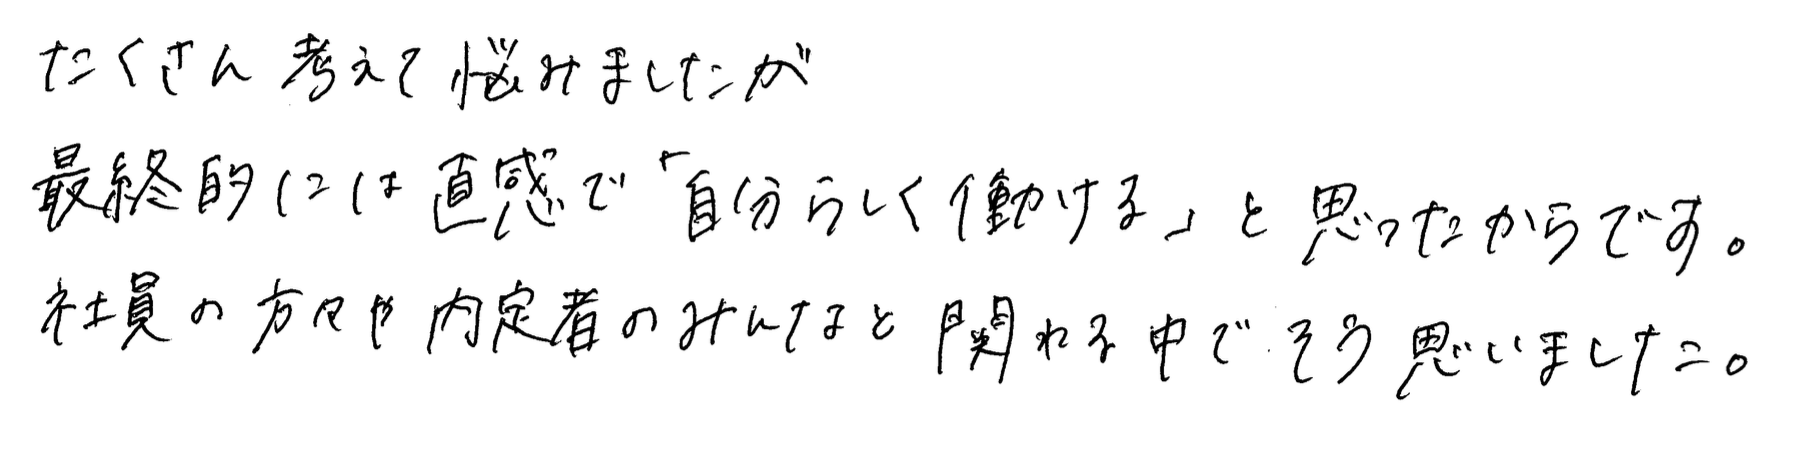 たくさん考えて悩みましたが
最終的には直感で「自分らしく働ける」と思ったからです。
社員の方々や内定者のみんなと関わる中でそう思いました。